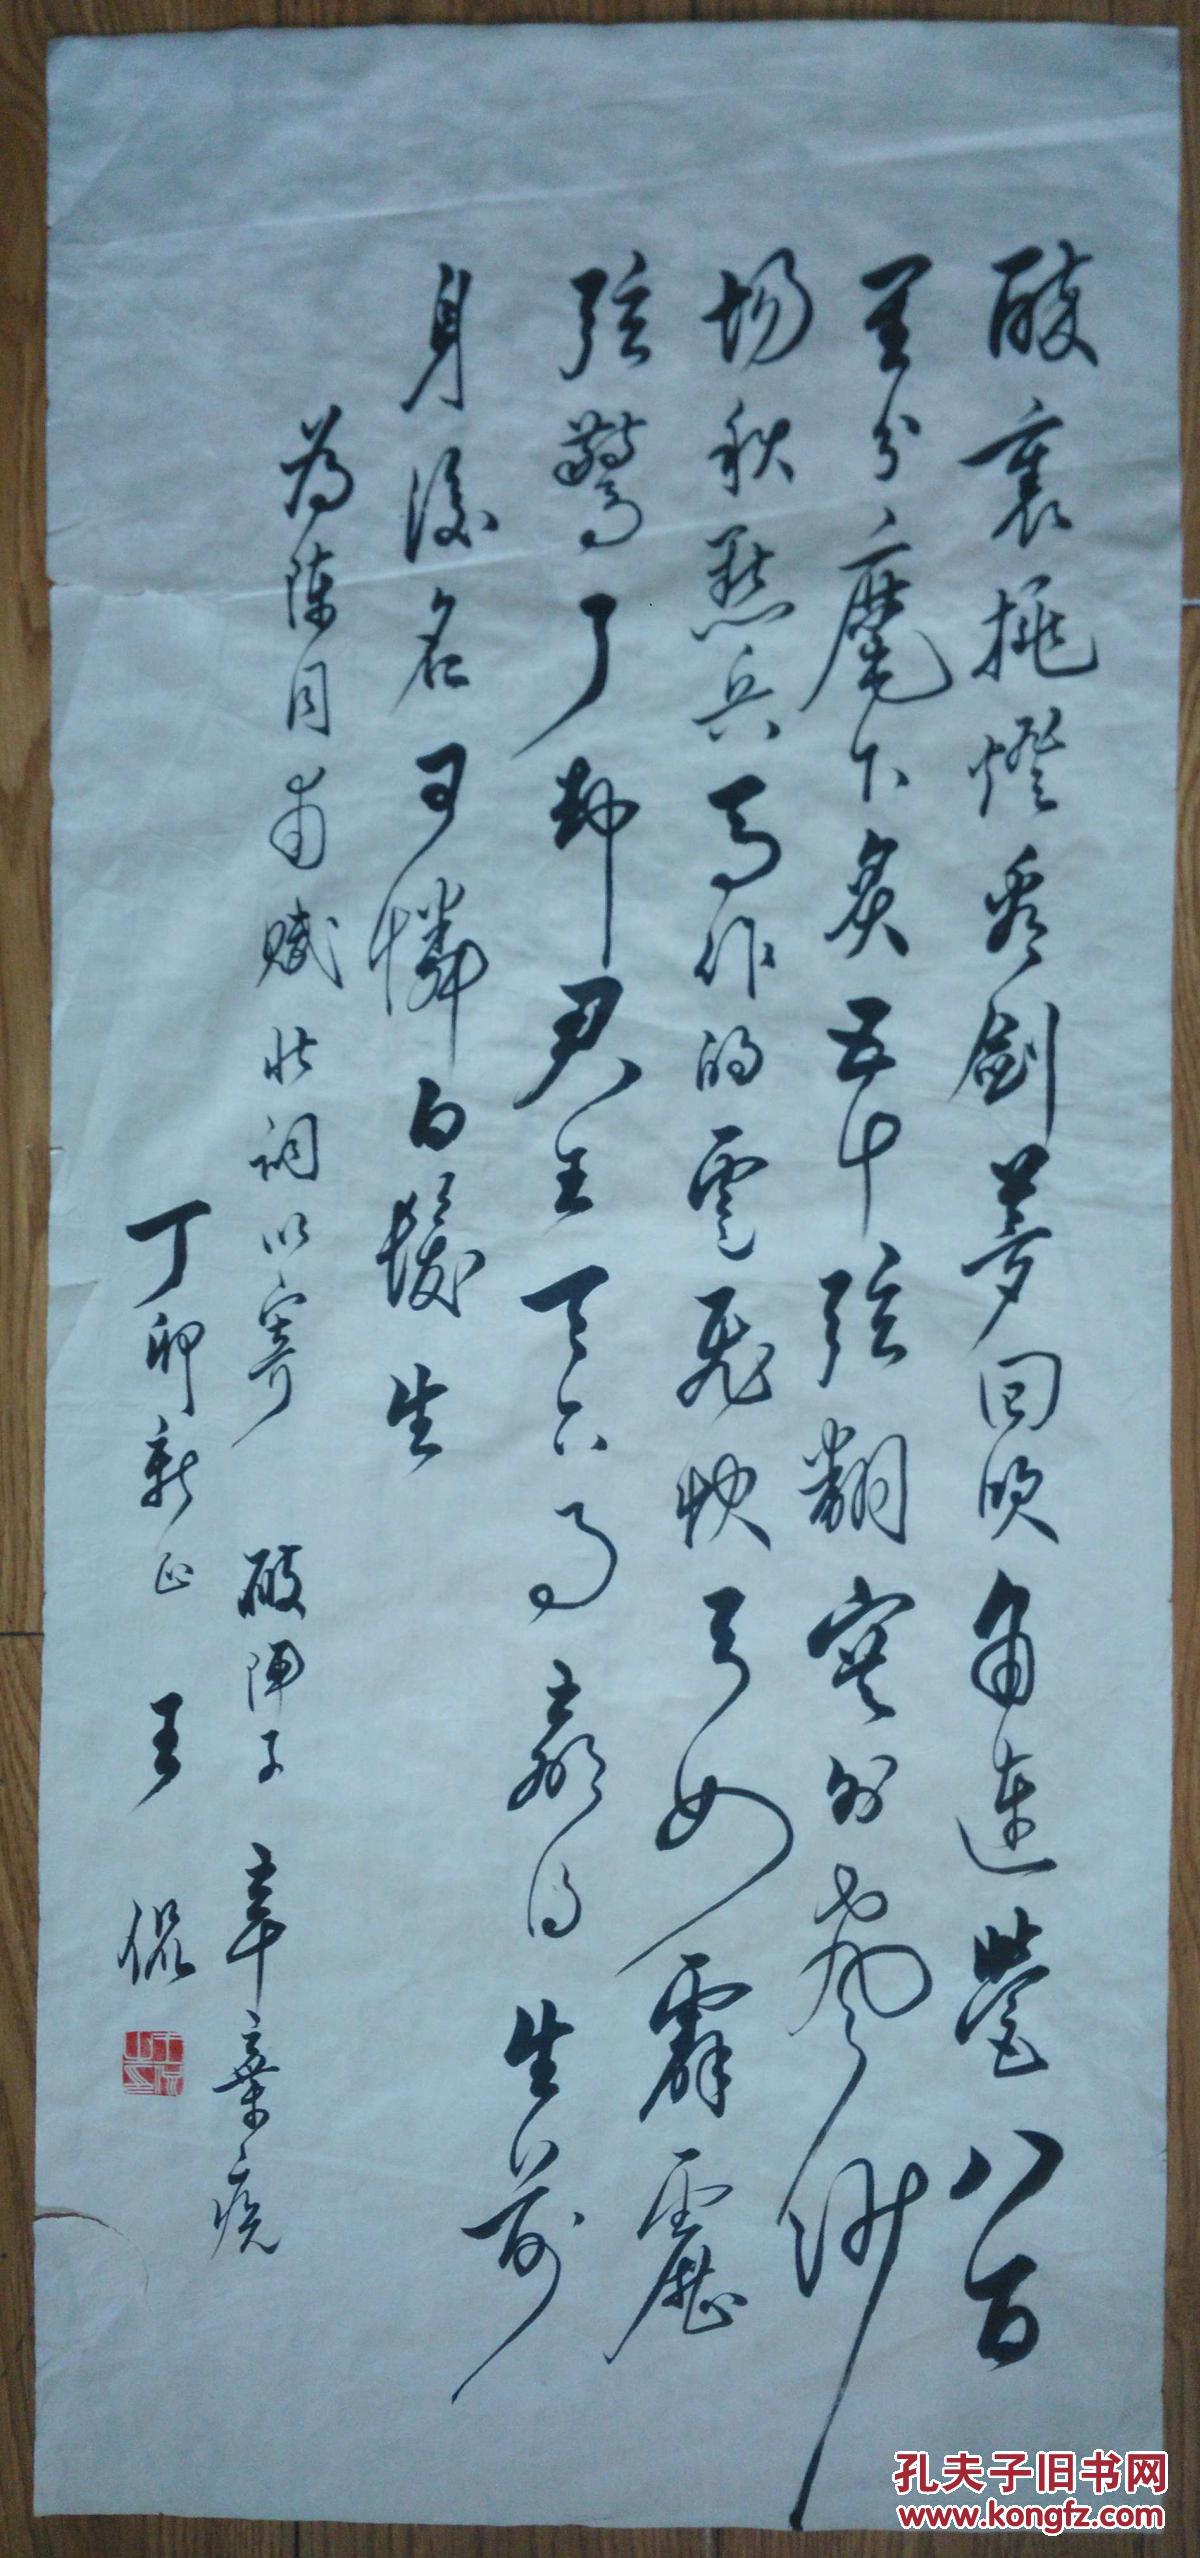 醉裏挑燈看劍夢回吹角連營八百
里分麾下炙五十弦翻塞外聲沙
場秋點兵馬作的盧飛快弓如霹靂
弦驚了却君王天下事贏得生前
身後名可憐白髮生
為陳同甫賦壯詞以寄 破陣子 辛棄疾
丁卯新正 王侃
孔夫子旧书网
www.kongfz.com